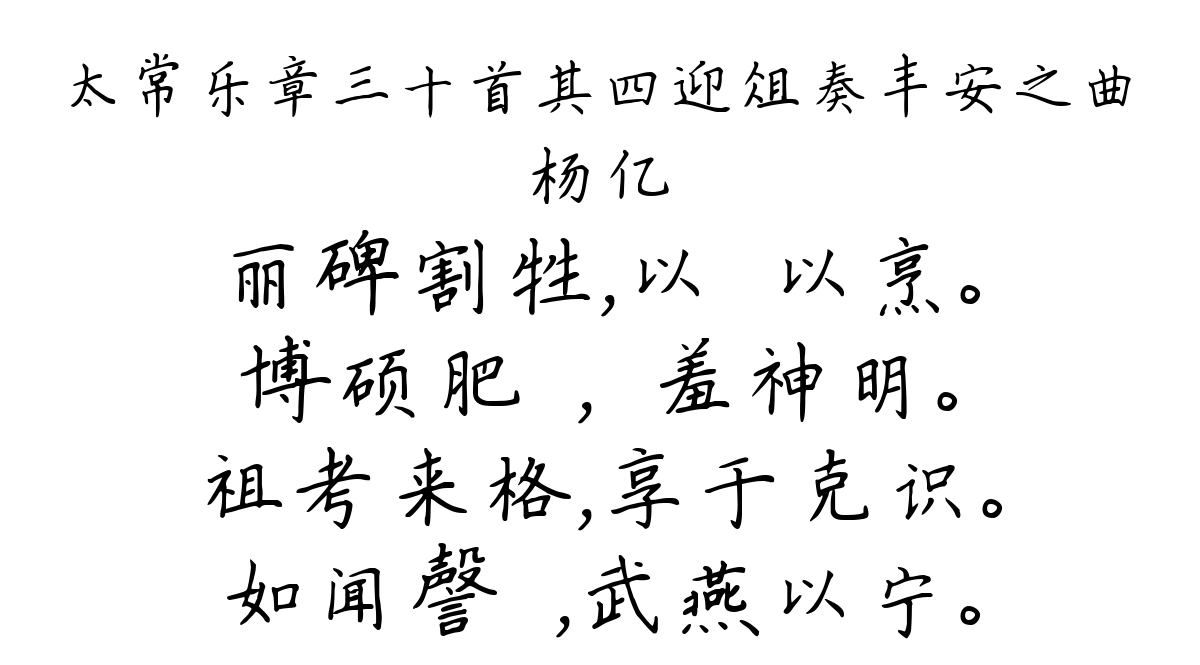 太常乐章三十首其四迎俎奏丰安之曲
杨亿
丽碑割牲,以 以烹。
博硕肥 ,羞神明。
祖考来格,享于克识。
如闻謦 ,武燕以宁。